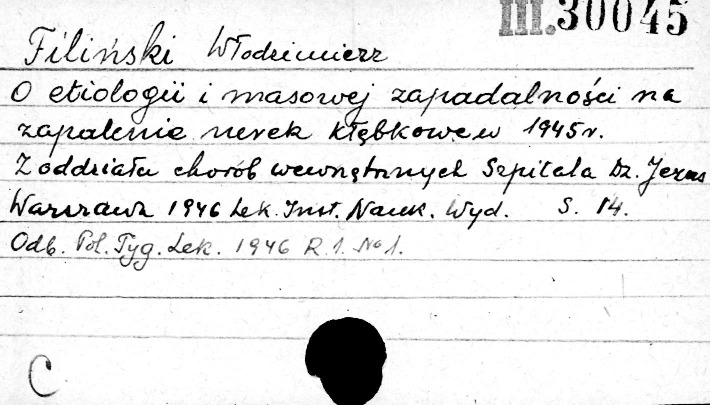 III.30045
Filiński Włodzimierz
O etiologii i masowej zapadalności na
zapalenie nerek kłębkowe w 1945 r.
Z oddziału chorób wewnętrznych Szpitala Dz. Jezus
Warszawa 1946 Lek. Inst. Nauk. Wyd. S. 14.
Odb. Pol. Tyg. Lek. 1946 R. 1. No 1.
C